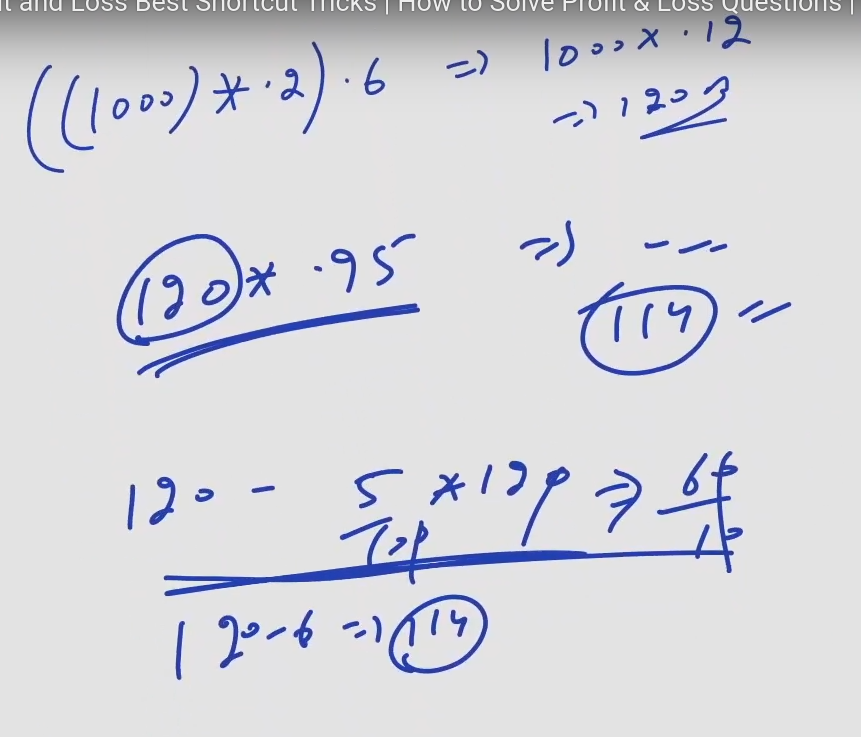 t and Loss Best Shortcut Tricks | How to Solve Profit & Loss Questions |
((1000) * .2) .6 => 1000 x .12
=> 120
120 * .95 => ---
114 =
120 - 5/100 * 120 => 60/10
120-6 => 114